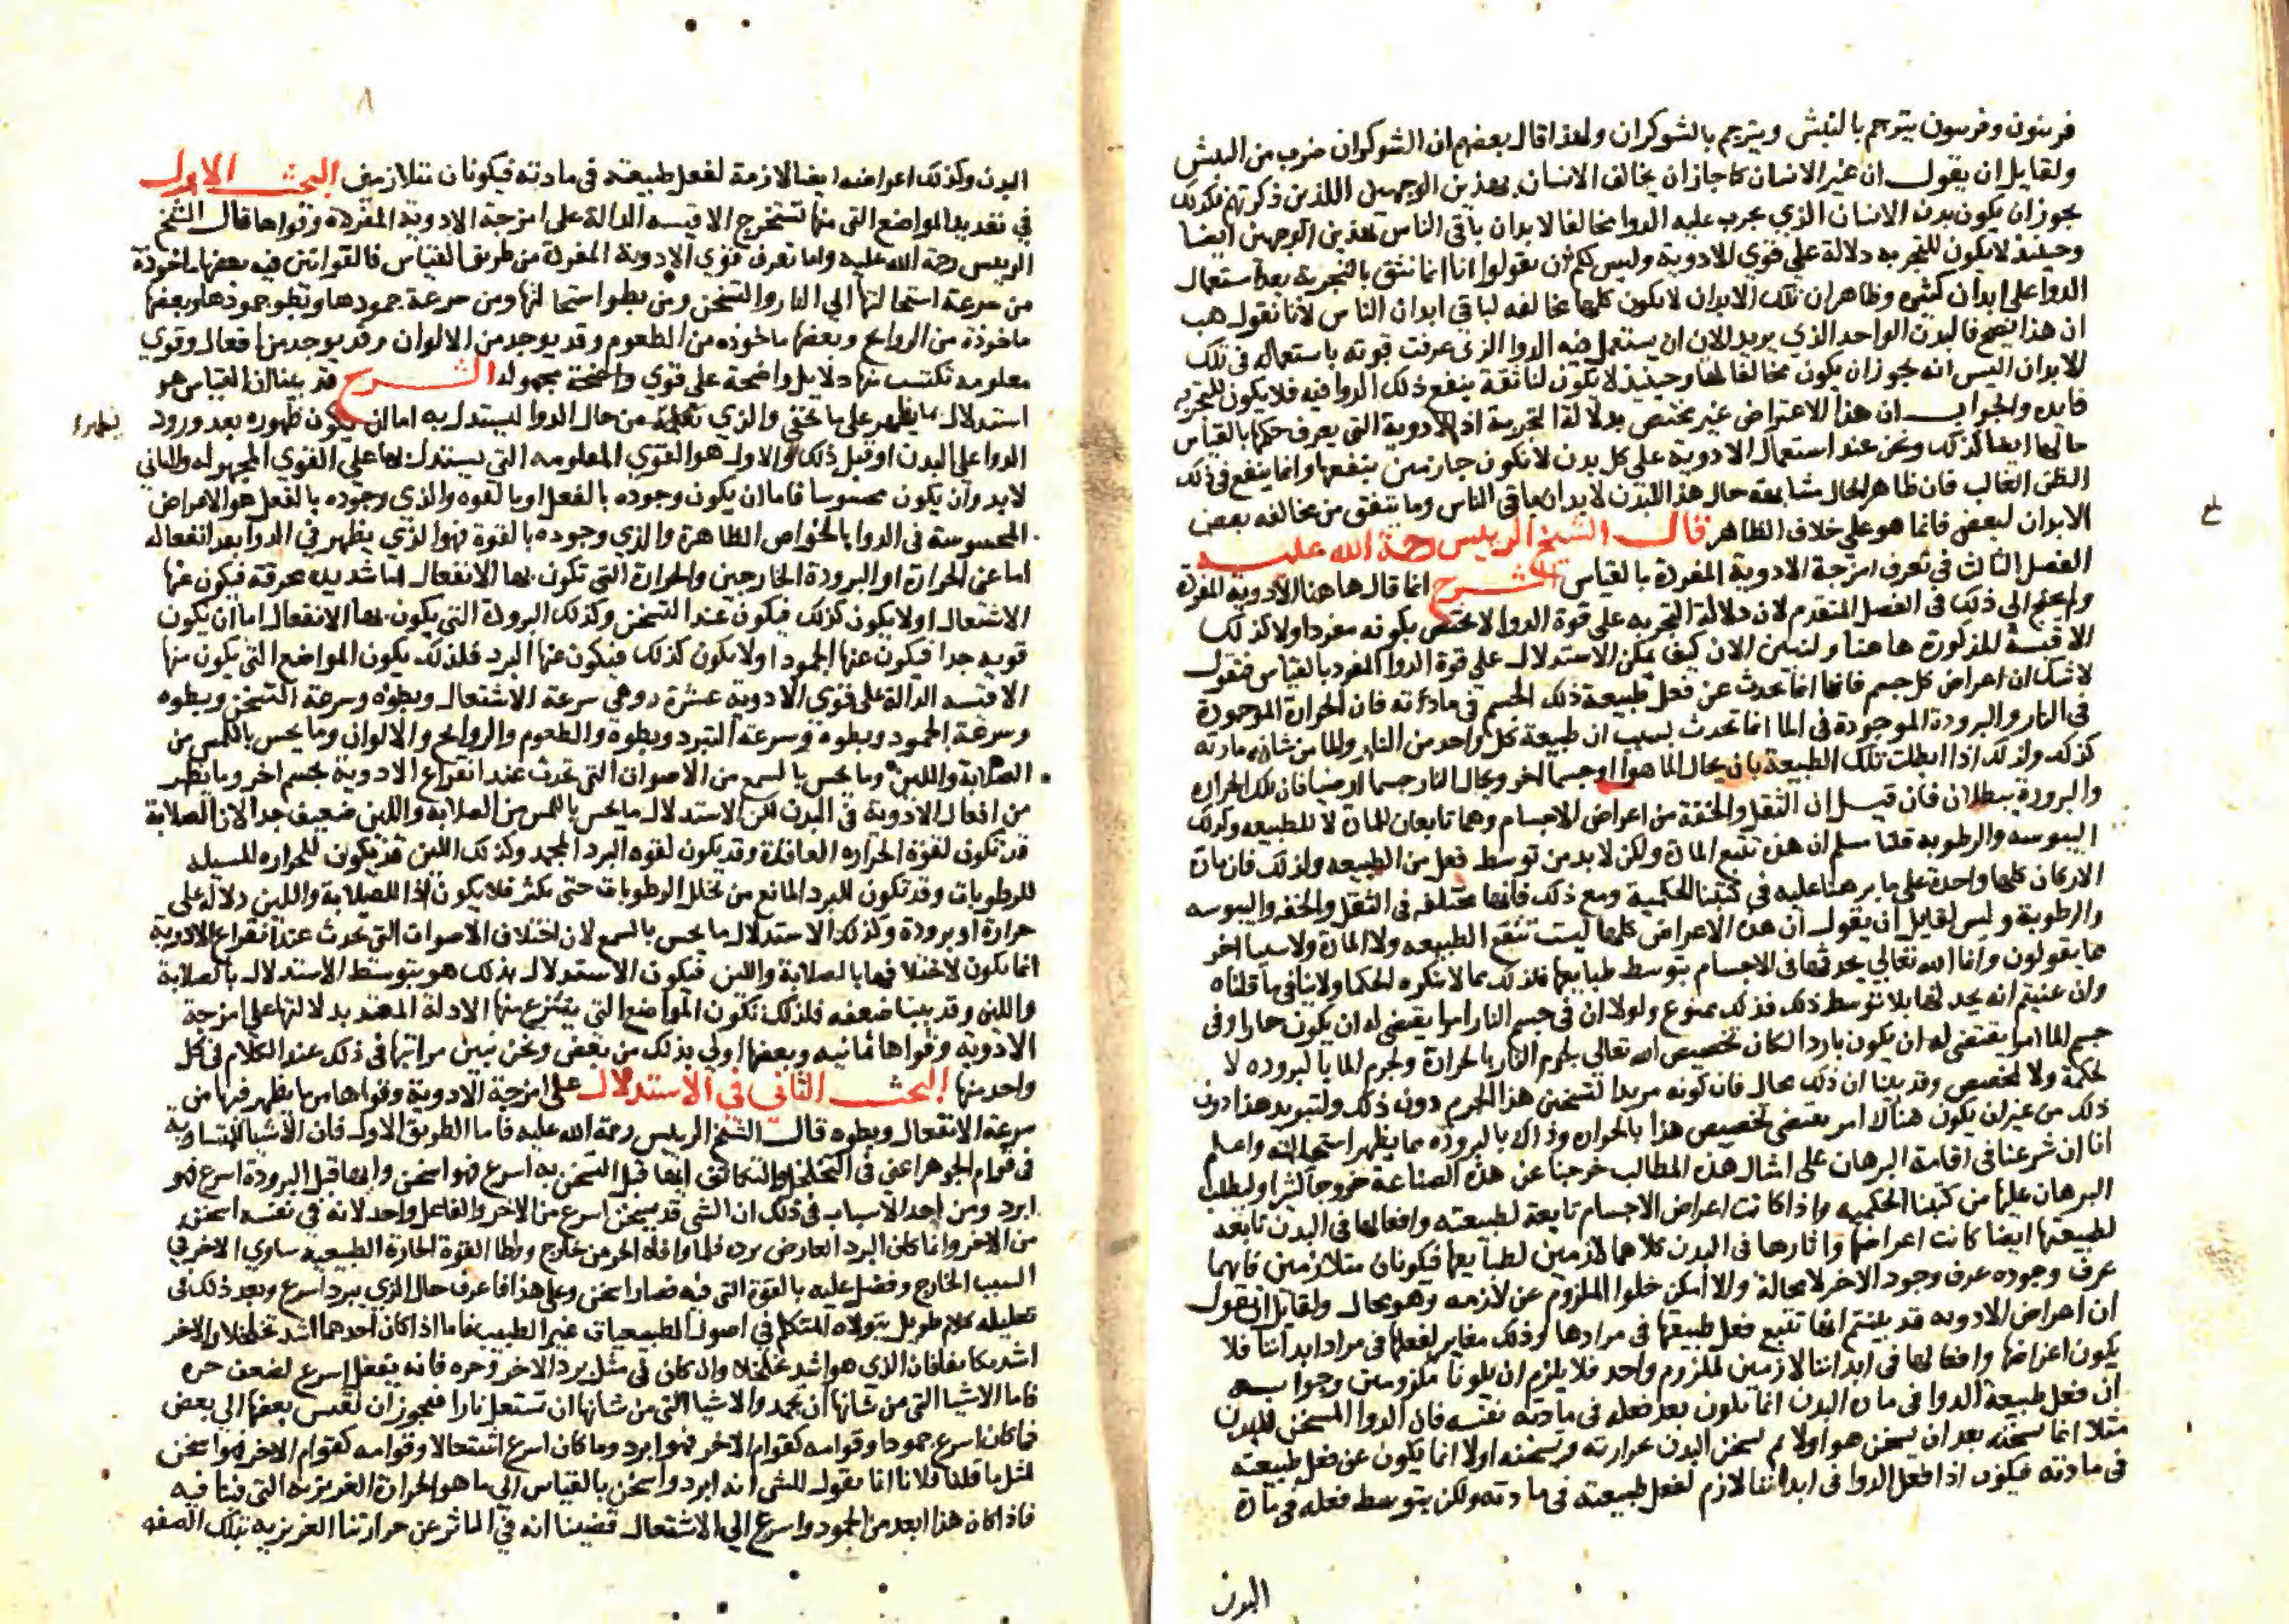 فرينون وفرسون يترجم بالبيش ويترجم بالشوكران ولهذا قال بعضهم ان الشوكران ضرب من البيش
ولقايل ان يقول ان غير الانسان كما جاز ان يخالف الانسان بهذين الوجهين اللذين ذكرتم فكذلك
يجوز ان يكون بدن الانسان الذي يجرب عليه الدوا مخالفا لابدان باقي الناس بهذين الوجهين ايضا
وحينيذ لا يكون للتجربه دلالة على قوي الادوية وليس لكم ان تقولوا انا انما نثق بالتجربة بعد استعمال
الدوا على ابدان كثيره وظاهر ان تلك الابدان لا يكون كلها مخالفه لباقي ابدان الناس لانا نقول هب
ان هذا يصح فالبدن الواحد الذي يريد الان ان يستعمل فيه الدوا الذي عرفت قوته باستعماله في تلك
الابدان اليس انه يجوز ان يكون مخالفا لها وحينيذ لا يكون لنا ثقة بنفع ذلك الدوا فيه فلا يكون للتجربه
فايده والجواب ان هذا الاعتراض غير مختص بدلالة التجربة اذ الادوية التي يعرف حكمها بالقياس
حالها ايضا كذلك ونحن عند استعمال الادوية على كل بدن لا نكون جازمين بنفعها وانما ينفع في ذلك
الظن الغالب فان ظاهر الحال مشابهة حال هذا البدن لابدان باقي الناس وما يتفق من مخالفه بعض
الابدان لبعض فانما هو على خلاف الظاهر قال الشيخ الرييس رحمة الله عليه
الفصل الثالث في تعرف امزجة الادوية المفردة بالقياس الشرح انما قال هاهنا الادوية المفردة
ولم يحتج الى ذلك في الفصل المتقدم لان دلالة التجربه على قوة الدوا لا يختص بكونه مفردا ولا كذلك
الاقيسة المذكورة هاهنا ولنبين الان كيف يمكن الاستدلال على قوة الدوا المفرد بالقياس فنقول
لا شك ان اعراض كل جسم فانها انما يحدث عن فعل طبيعة ذلك الجسم في مادته فان الحرارة الموجودة
في النار والبرودة الموجودة في الما انما تحدث بسبب ان طبيعة كل واحد من النار والما من شانه مادته
كذلك ولذلك اذا ابطلت تلك الطبيعة بان يحال الما هوا او جسما اخر ويحال النار جسما ارضيا فان تلك الحراره
والبرودة يبطلان فان قيل ان الثقل والخفة من اعراض الاجسام وهما تابعان للمادة لا للطبيعه وكذلك
اليبوسه والرطوبه قلنا مسلم ان هذه تتبع المادة ولكن لا بد من توسط فعل من الطبيعه ولذلك فان مادة
الاركان كلها واحدة على ما برهنا عليه في كتبنا الحكمية ومع ذلك فانها مختلفه في الثقل والخفه واليبوسه
والرطوبة وليس لقايل ان يقول ان هذه الاعراض كلها ليست تتبع الطبيعه ولا المادة ولا سببا اخر
مما يقولون وانما الله تعالي يحدثها في الاجسام بتوسط طبايعها فذلك مما لا ينكره الحكما ولا ينافي ما قلناه
وان عنيتم انه يحدثها بلا توسط ذلك فذلك ممنوع ولولا ان في جسم النار امرا يقتضي له ان يكون حارا وفي
جسم الما امرا يقتضي له ان يكون باردا لكان تخصيص الله تعالي لجرم النار بالحرارة ولجرم الما بالبروده لا
لحكمة ولا لمخصص وقد بينا ان ذلك محال فان كونه مريدا لتسخين هذا الجرم دون ذلك ولتبريد هذا دون
ذلك من غير ان يكون هناك امر يقتضي تخصيص هذا بالحراره وذاك بالبروده مما يظهر استحالته واعلم
انا ان شرعنا في اقامة البرهان على امثال هذه المطالب خرجنا عن هذه الصناعة خروجا كثيرا وليطلب
البرهان عليها من كتبنا الحكميه واذا كانت اعراض الاجسام تابعة لطبيعته وافعالها في البدن تابعه
لطبيعتها ايضا كانت اعراضها واثارها في البدن كلاهما لازمين لطبايعها فيكونان متلازمين فايهما
عرف وجوده عرف وجود الاخر لا محالة والا امكن خلوا الملزوم عن لازمه وهو محال ولقايل ان يقول
ان اعراض الادويه قد بينتم انها تتبع فعل طبيعتها في مرادها وذلك مغاير لفعلها في مراد ابداننا فلا
يكون اعراضها وافعالها في ابداننا لازمين لملزوم واحد فلا يلزم ان يكونا ملزومين وجوابه
ان فعل طبيعة الدوا في مادة البدن انما تكون بعد فعله في مادته نفسه فان الدوا المسخن للبدن
مثلا انما يسخنه بعد ان يسخن هو اولا ثم يسخن البدن بحرارته وتسخنه اولا انما يكون عن فعل طبيعته
في مادته فيكون اذا فعل الدوا في ابداننا لازم لفعل طبيعته في مادته ولكن بتوسط فعله في مادة
البدن
٨
البدن وكذلك اعراضه ايضا لازمة لفعل طبيعته في مادته فيكونان متلازمين البحث الاول
في تعديد المواضع التي منها تستخرج الاقيسه الدالة على امزجة الادوية المفردة وقواها قال الشيخ
الرييس رحمة الله عليه واما تعرف قوي الادوية المفردة من طريق القياس فالقوانين فيه بعضها ماخوذة
من سرعة استحالتها الي النار والتسخن ومن بطو استحالتها ومن سرعة جمودها وبطو جمودها وبعضها
ماخوذة من الروايح وبعضها ماخوذه من الطعوم وقد يوجد من الالوان وقد يوجد من افعال وقوي
معلومه تكتسب منها دلايل واضحة على قوي واضحة مجهوله الشرح قد بينا ان القياس هو
استدلال بما يظهر على ما يخفي والذي نعلمه من حال الدوا ليستدل به اما ان يكون ظهوره بعد ورود
الدوا على البدن او قبل ذلك والاول هو القوي المعلومه التي يستدل بها على القوي المجهوله والثاني
لا بد وان يكون محسوسا فاما ان يكون وجوده بالفعل او بالقوه والذي وجوده بالفعل هو الاعراض
المحسوسة في الدوا بالحواس الظاهرة والذي وجوده بالقوة فهو الذي يظهر في الدوا بعد انفعاله
اما عن الحرارة او البرودة الخارجين والحرارة التي تكون بها الانفعال اما شديده محرقة فيكون عنها
الاشتعال او لا يكون كذلك فيكون عند التسخن وكذلك البرودة التي يكون بها الانفعال اما ان يكون
قويه جدا فيكون عنها الجمود او لا يكون كذلك فيكون عنها البرد فلذلك يكون المواضع التي يكون منها
الاقيسه الدالة على قوي الادوية عشرة وهي سرعة الاشتعال وبطوه وسرعة التسخن وبطوه
وسرعة الجمود وبطوه وسرعة التبرد وبطوه والطعوم والروايح والالوان وما يحس باللمس من
الصلابة واللين وما يحس بالسمع من الاصوات التي تحدث عند انقراع الادوية بجسم اخر وما يظهر
من افعال الادوية في البدن لكن الاستدلال بما يحس باللمس من الصلابة واللين ضعيف جدا لان الصلابة
قد تكون لقوة الحراره العاقدة وقد يكون لقوه البرد المجمد وكذلك اللين قد يكون للحراره المسيله
للرطوبات وقد تكون للبرد المانع من تحلل الرطوبات حتى يكثر فلا يكون اذا للصلابة واللين دلالة على
حرارة او برودة وكذلك الاستدلال بما يحس بالسمع لان اختلاف الاصوات التي تحدث عند انقراع الادوية
انما يكون لاختلافها بالصلابة واللين فيكون الاستدلال بذلك هو بتوسط الاستدلال بالصلابة
واللين وقد بينا ضعفه فلذلك تكون المواضع التي ينتزع منها الادلة المعتد بدلالتها على امزجة
الادوية وقواها ثمانيه وبعضها اولي بذلك من بعض ونحن نبين مراتبها في ذلك عند الكلام في كل
واحد منها البحث الثاني في الاستدلال على امزجة الادوية وقواها من ما يظهر فيها من
سرعة الانفعال وبطوه قال الشيخ الرييس رحمة الله عليه فاما الطريق الاول فان الاشيا المتساوية
في قوام الجوهر اعني في التخلخل والتكاثف ايها قبل التسخن به اسرع فهو اسخن وايها قبل البرودة اسرع فهو
ابرد ومن احد الاسباب في ذلك ان الشي قد يسخن اسرع من الاخر والفاعل واحد لانه في نفسه اسخن
من الاخر وانما كان البرد العارض برده فلما وافاه الحر من خارج واطا القوة الحارة الطبيعيه ساوي الاخر في
السبب الخارج وفضل عليه بالقوة التي فيه فصار اسخن وعلى هذا فاعرف حال الذي يبرد اسرع وبعد ذلك في
تعليله كلام طويل يتولاه المتكلم في اصول الطبيعيات غير الطبيب فاما اذا كان احدهما اشد تخلخلا والاخر
اشد تكاثفا فان الذي هو اشد تخلخلا وان كان في مثل برد الاخر وحره فانه ينفعل اسرع لضعف جرمه
فاما الاشيا التي من شانها ان تجمد والاشيا التي من شانها ان تشتعل نارا فيجوز ان تقيس بعضها الي بعض
فما كان اسرع جمودا وقوامه كقوام الاخر فهو ابرد وما كان اسرع اشتعالا وقوامه كقوام الاخر فهو اسخن
لمثل ما قلنا فلانا انما نقول للشي انه ابرد واسخن بالقياس الي ما هو الحرارة الغريزية التي فينا فيه
فاذا كان هذا ابعد من الجمود واسرع الي الاشتعال قضينا انه في الماثر عن حرارتنا الغريزيه بتلك الصفه